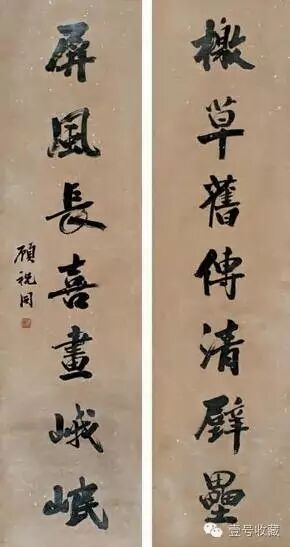 檄草舊傳清壁壘
屏風長喜畫峨岷
顧祝同
壹号收藏